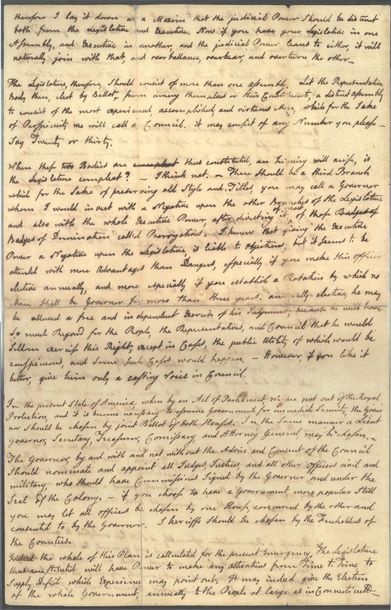 therefore I lay it down as a Maxim that the judicial Power should be distinct
both from the Legislature and Executive. Now if you have your Legislative in one
Assembly, and Executive in another, and the judicial Power leans to either, it will
naturally join with that, and overballance, overbear, and overturn the other.
The Legislature, therefore should consist of more than one assembly. Let the Representative
Body, then, elect by Ballot, from among themselves or their Constituents, a distinct assembly
to consist of the most experienced accomplished and virtuous Men, which for the Sake
of Perspicuity we will call a Council. it may consist of any Number you please
Say Twenty or thirty.
When these two Bodies are thus constituted, an Inquiry will arise, is
the Legislature compleat? — I think not. — There should be a third Branch
which for the Sake of preserving old Style and Titles, you may call a Governor
whom I would invest with a Negative upon the other Branches of the Legislature
and also with the whole Executive Power, after divesting it of those Badges of
Badges of Domination call'd Prerogatives. I know that giving the Executive
Power a Negative upon the Legislature is liable to objections, but it seems to be
attended with more Advantages than Dangers, especially if you make this officer
elective annually, and more especially if you establish a Rotation by which no
Man shall be Governor for more than three years. annually elective, he may
be allowed a free and independent Exercise of his Judgment, because he will have
So much Regard for the People, the Representatives, and Council that he would
Seldom exercise this Right, except in Cases, the public Utility of which would be
conspicuous, and Some such Cases would happen. — However, if you like it
better, give him only a casting Voice in Council.
In the present State of America when by an Act of Parliament we are put out of the Royal
Protection and it is become necessary to assume government for immediate Security, the Gover
nor should be chosen by joint Ballot of both Houses. In the Same manner a Lieut
governor, Secretary, Treasurer, Comissary and Attorney General may be chosen.
The Governor, by and with and not without the Advice and Consent of the Council
Should nominate and appoint all Judges, Justices, and all other Officers civil and
military, who should have Commissions Signed by the Governor and under the
Seal of the Colony. — if you choose to have a government more popular Still
you may let all officers be chosen by one House, concurred by the other and
consented to by the Governor. Sherriffs should be chosen by the Freeholders of
the Counties.
Indeed the whole of this Plan is calculated for the present Emergency. The Legislature
thus constituted will have Power to make any alteration from Time to Time to
Supply Defects which Experience may point out. It may indeed give the Election
of the whole Government, annually to the People at large as in Connecticutt.